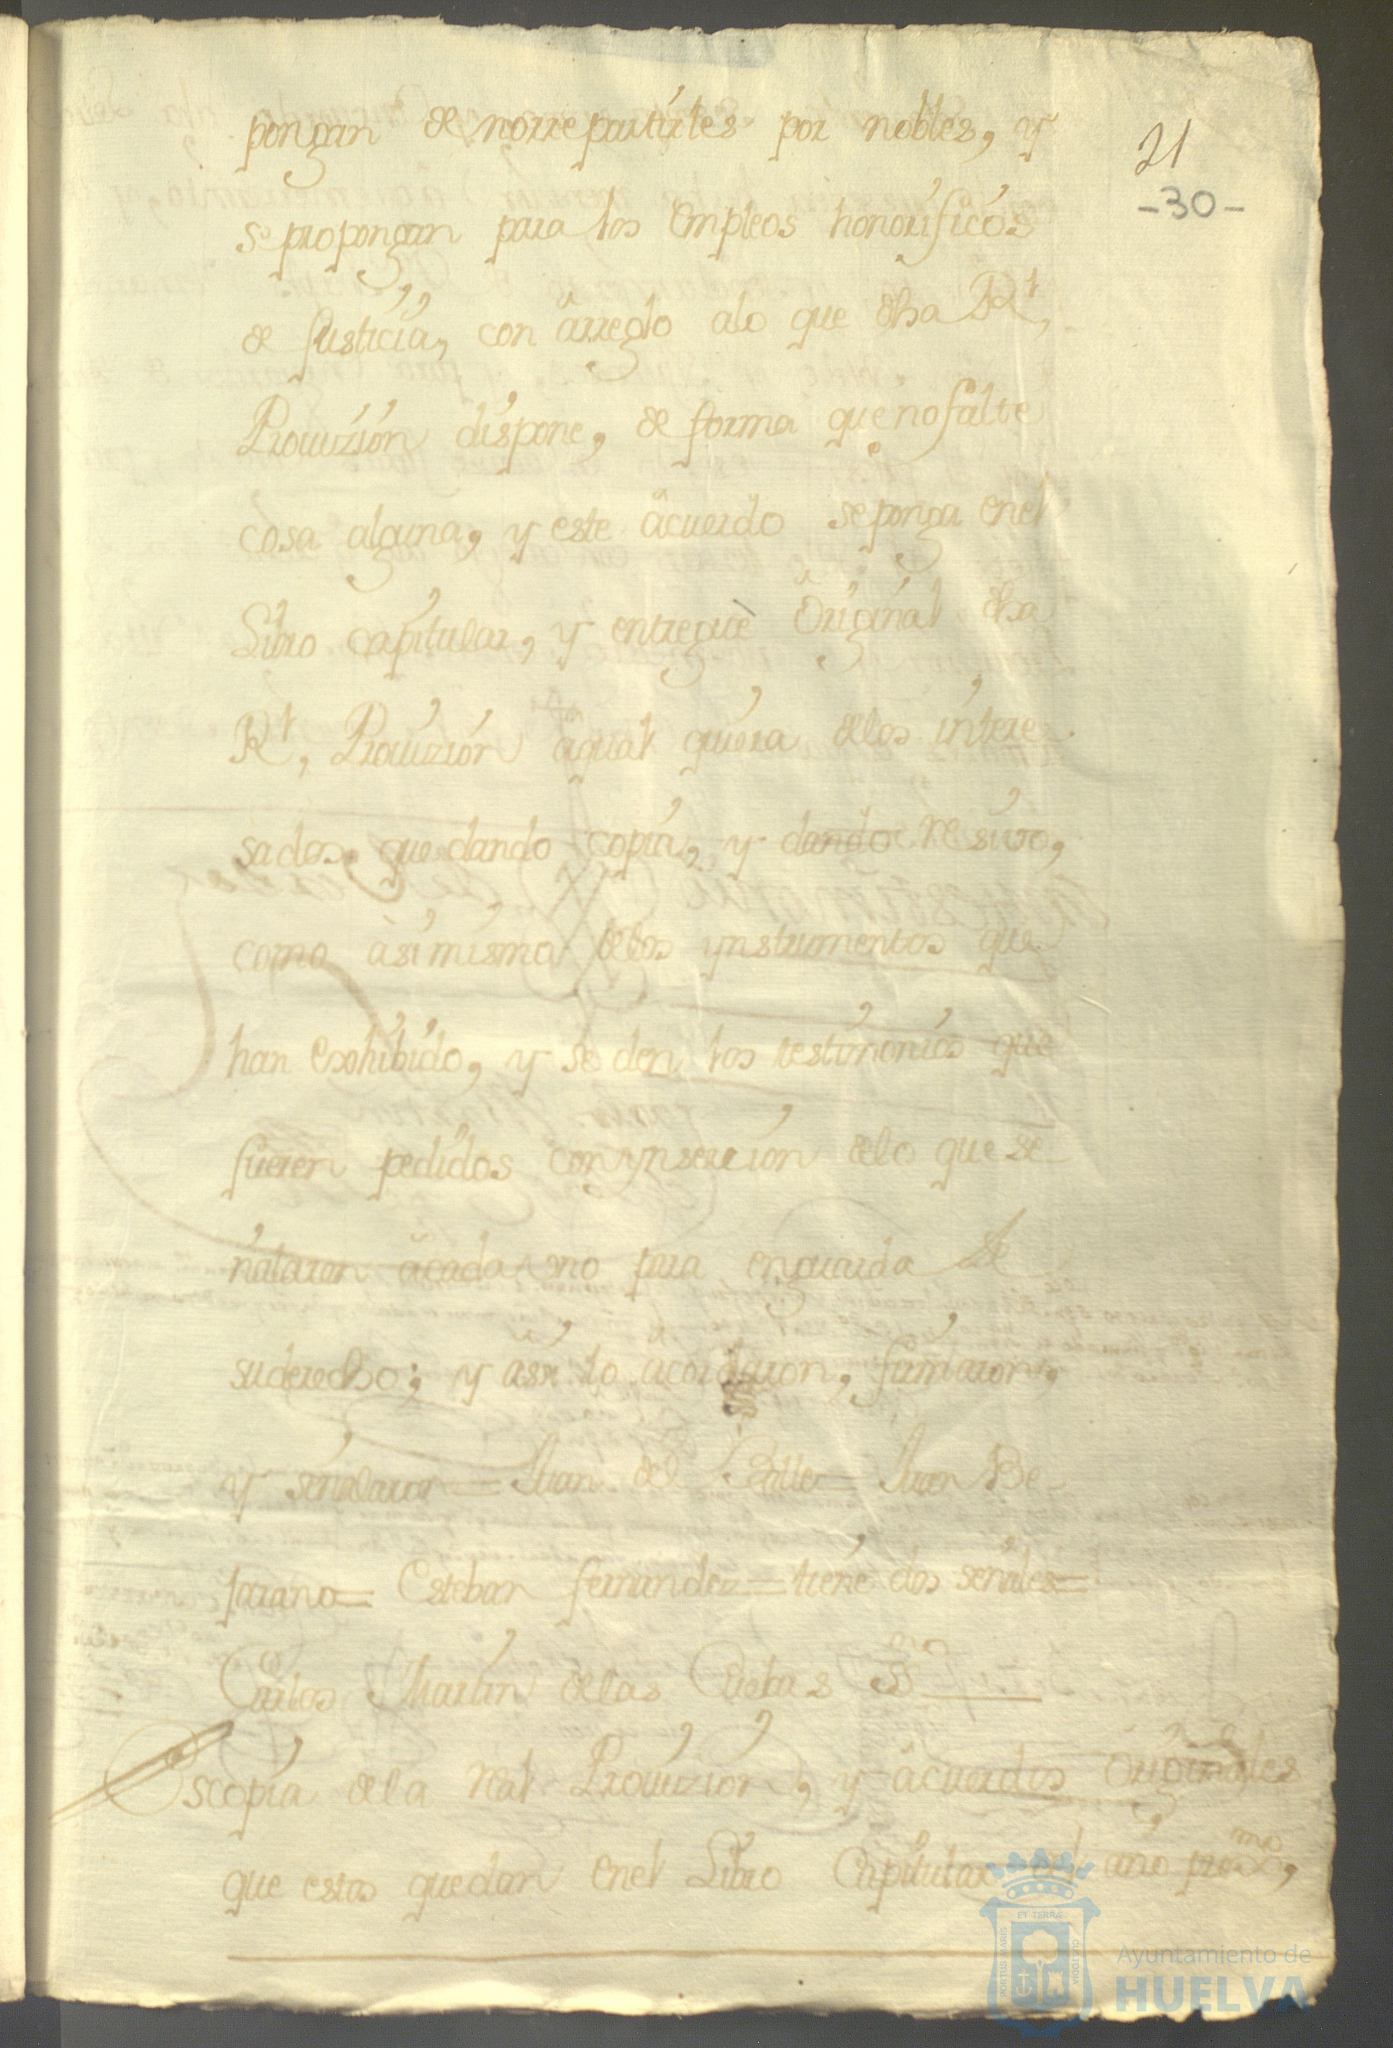 21
-30-
pongan de norrepartirles por nobles, y
se propongan para los Empleos honorificos
de Justicia, con ârreglo alo que dha Rl,
Prouizion dispone, de forma que no falte
cosa alguna, y este âcuerdo se ponga enel
Libro capitular, y entregue Original dha
Rl, Prouizion âqual quiera delos intere
sados, que dando copia, y dando resiuo,
como âsi mismo delos ynstrumentos que
han Exohibido, y se den los testimonios que
fueren pedidos con ynsercion delo que se
ñalaren âcada vno para enguarda de
suderecho; y âsi lo âcordaron, firmaron,
y señalaron = Juan del Valle = Juan Be
jarano = Esteban fernandez = tiene dos señales =
Carlos Martin delas Cuebas ssno
Es copia dela real Prouizion, y âcuerdos Originales
que estas quedan enel Libro Capitular del año proxmo,
Ayuntamiento de
HUELVA
PORTUS MARIS ET TERRÆ CUSTODIA